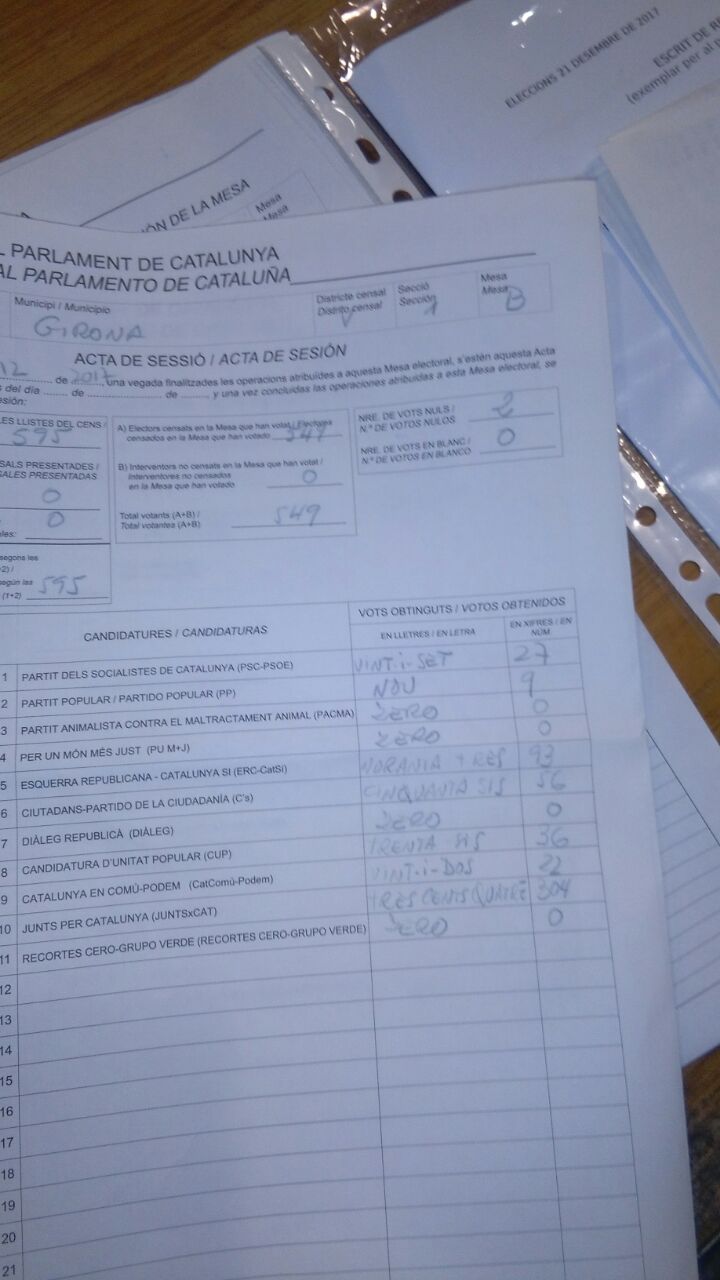 ELECCIONS 21 DESEMBRE DE 2017
ESCRIT DE
(exemplar per al
ÓN DE LA MESA
Mesa
Mesa
PARLAMENT DE CATALUNYA
AL PARLAMENTO DE CATALUÑA
Municipi / Municipio
GIRONA
Districte censal
Distrito censal
Secció
Sección
1
Mesa
Mesa
B
ACTA DE SESSIÓ / ACTA DE SESIÓN
12 de 2017, una vegada finalitzades les operacions atribuïdes a aquesta Mesa electoral, s'estén aquesta Acta
s del día de de y una vez concluidas las operaciones atribuidas a esta Mesa electoral, se
esión:
ES LLISTES DEL CENS /
595
SALS PRESENTADES /
ALES PRESENTADAS
0
0
les:
segons les
+2) /
según las
(1+2) 595
A) Electors censats en la Mesa que han votat / Electores
censados en la Mesa que han votado
B) Interventors no censats en la Mesa que han votat /
Interventores no censados
en la Mesa que han votado 0
Total votants (A+B) /
Total votantes (A+B) 549
NRE. DE VOTS NULS /
N.º DE VOTOS NULOS 2
NRE. DE VOTS EN BLANC /
N.º DE VOTOS EN BLANCO 0
CANDIDATURES / CANDIDATURAS
VOTS OBTINGUTS / VOTOS OBTENIDOS
EN LLETRES / EN LETRA
EN XIFRES / EN NÚM
1 PARTIT DELS SOCIALISTES DE CATALUNYA (PSC-PSOE) VINT-i-SET 27
2 PARTIT POPULAR / PARTIDO POPULAR (PP) NOU 9
3 PARTIT ANIMALISTA CONTRA EL MALTRACTAMENT ANIMAL (PACMA) ZERO 0
4 PER UN MÓN MÉS JUST (PU M+J) ZERO 0
5 ESQUERRA REPUBLICANA - CATALUNYA SI (ERC-CatSí) NORANTA TRES 93
6 CIUTADANS-PARTIDO DE LA CIUDADANÍA (C's) CINQUANTA SIS 56
7 DIÀLEG REPUBLICÀ (DIÀLEG) ZERO 0
8 CANDIDATURA D'UNITAT POPULAR (CUP) TRENTA SIS 36
9 CATALUNYA EN COMÚ-PODEM (CatComú-Podem) VINT-i-DOS 22
10 JUNTS PER CATALUNYA (JUNTSxCAT) TRES CENTS QUATRE 304
11 RECORTES CERO-GRUPO VERDE (RECORTES CERO-GRUPO VERDE) ZERO 0
12
13
14
15
16
17
18
19
20
21